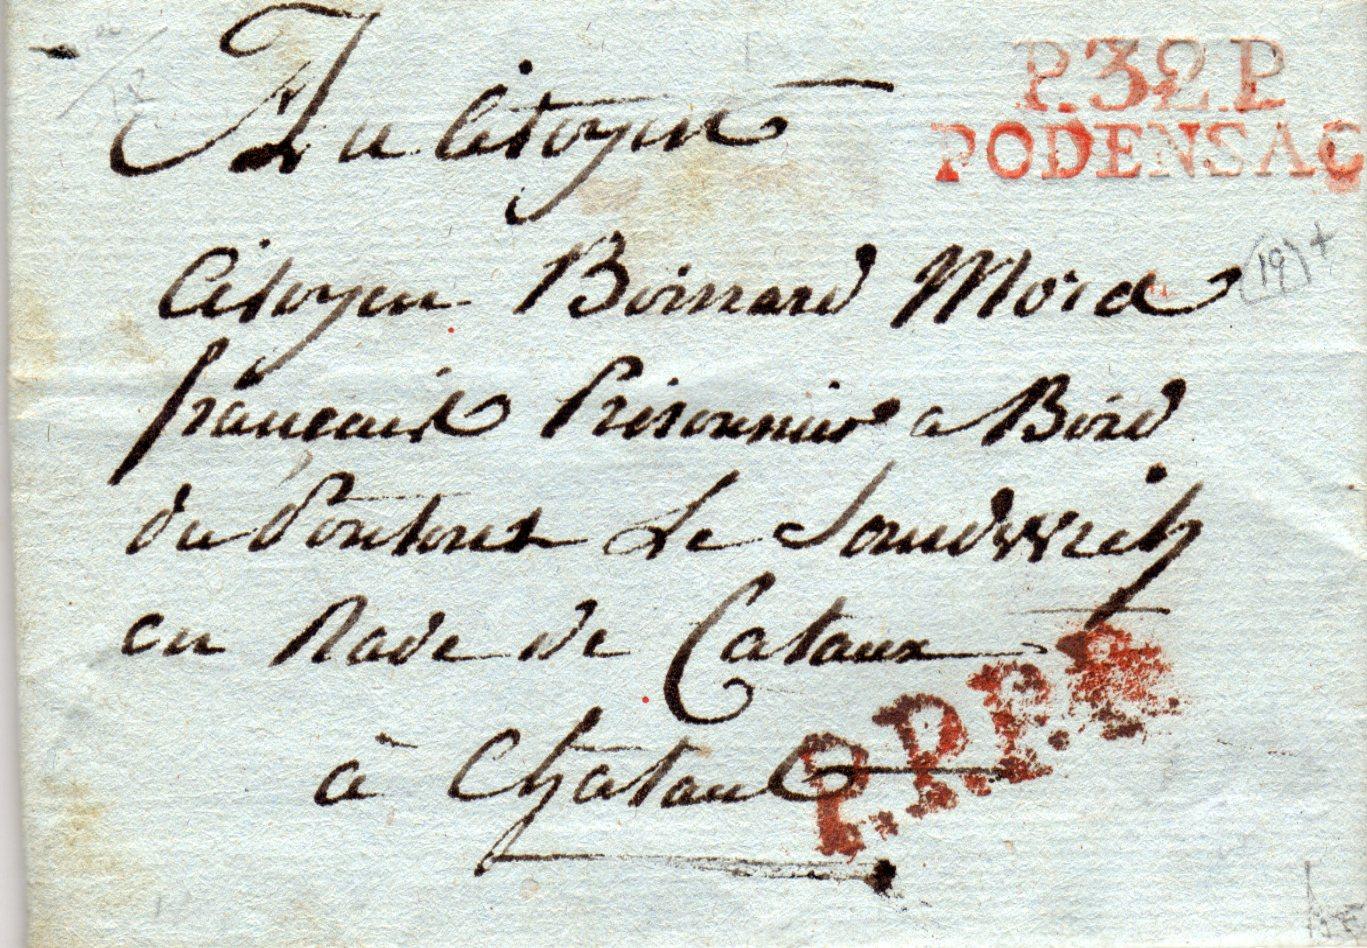 P.32.P
PODENSAC
Au Citoyen
Citoyen Boinard
français Prisonnier a Bord
du Pontons Le Sandwich
en Rade de Cataux
à Chatau
P.P.P.P.
19